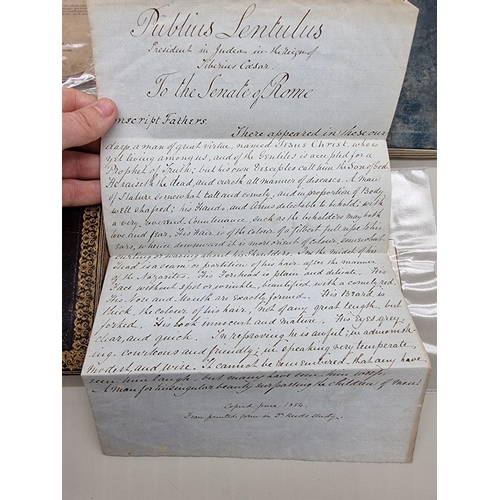 Publius Lentulus
President in Judea in the reign of
Tiberius Cæsar.
To the Senate of Rome
Conscript Fathers
There appeared in these our
days, a man of great virtue, named Jesus Christ, who is
yet living among us, and of the Gentiles is accepted for a
Prophet of Truth; but his own Disciples call him the Son of God
He raiseth the dead, and cureth all manner of diseases. A Man
of Stature somewhat tall and comely, and in proportion of Body
well shaped; his Hands and Arms delectable to behold; with
a very Reverend Countenance, such as the beholders may both
love and fear. His Hair is of the colour of a filbert full ripe to his
ears, whence downward it is more orient of colour, somewhat
curling or waving about his Shoulders. In the midst of his
Head is a seam or partition of his hair after the manner
of the Nazarites. His Forehead is plain and delicate. His
Face without spot or wrinkle, beautified with a comely red.
His Nose and Mouth are exactly formed. His Beard is
thick the colour of his hair, not of any great length, but
forked. His look innocent and mature. His Eyes grey,
clear, and quick. In reproving he is awful; in admonish-
ing, courteous and friendly; in speaking very temperate,
modest, and wise. It cannot be remembered that any have
seen him laugh, but many have seen him weep.
A man for his singular beauty surpassing the children of men
Copied June 1854
From printed form in Study.